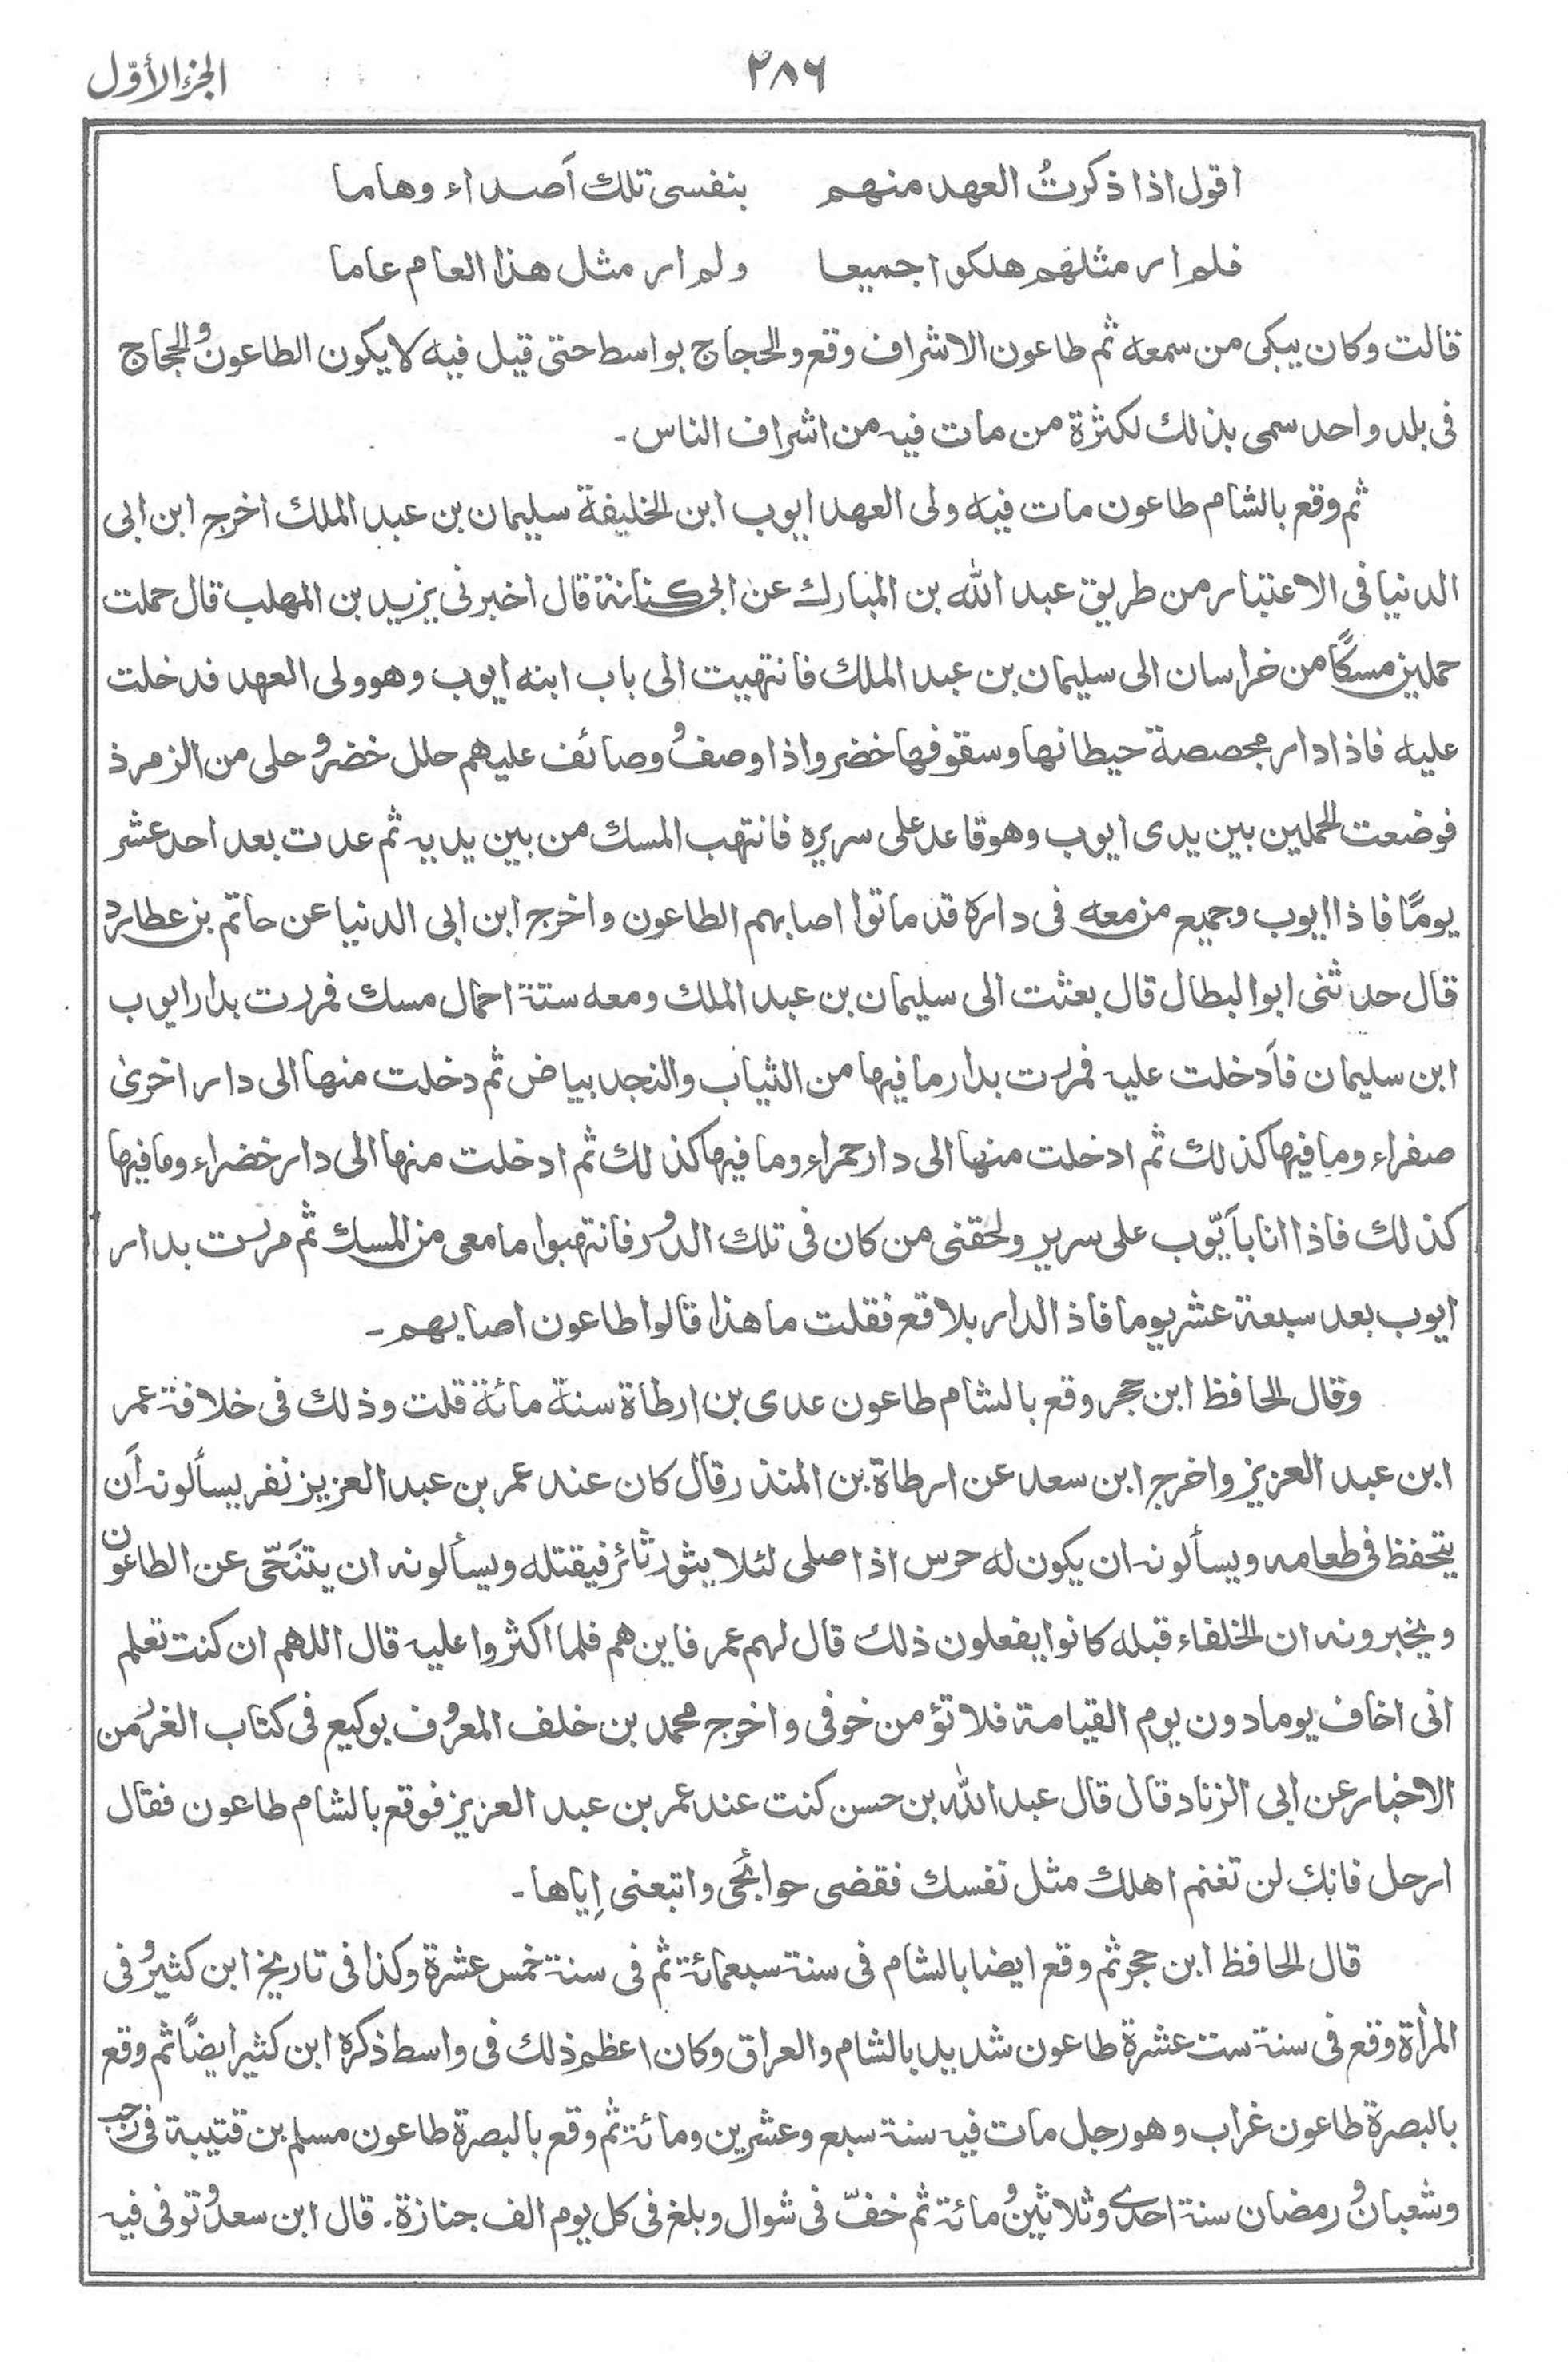 الجزء الأوّل
٢٨٦
اقول اذا ذكرتُ العهد منهم بنفسى تلك اَصداء وهاما
فلم ار مثلهم هلكوا جميعا ولم ار مثل هذا العام عاما
قالت وكان يبكى من سمعه ثم طاعون الاشراف وقع والحجاج بواسط حتى قيل فيه لا يكون الطاعون والحجاج
فى بلد واحد سمى بذلك لكثرة من مات فيه من اشراف الناس۔
ثم وقع بالشام طاعون مات فيه ولى العهد ايوب ابن الخليفة سليمان بن عبد الملك اخرج ابن ابى
الدنيا فى الاعتبار من طريق عبد الله بن المبارك عن ابى كنانة قال اخبرنى يزيد بن المهلب قال حملت
حملين مسكًا من خراسان الى سليمان بن عبد الملك فانتهيت الى باب ابنه ايوب وهو ولى العهد فدخلت
عليه فاذا دار مجصصة حيطانها وسقوفها خضر واذا وصفُ وصائف عليهم حلل خضر وحلى من الزمرذ
فوضعت الحملين بين يدى ايوب وهو قاعد على سريره فانتهب المسك من بين يديه ثم عدت بعد احد عشر
يومًا فاذا ايوب وجميع من معه فى داره قد ماتوا اصابهم الطاعون واخرج ابن ابى الدنيا عن حاتم بن عطارد
قال حدثنى ابو البطال قال بعثت الى سليمان بن عبد الملك ومعه ستة احمال مسك فمررت بدار ايوب
ابن سليمان فاَدخلت عليه فمررت بدار ما فيها من الثياب والنجد بياض ثم دخلت منها الى دار اخرىٰ
صفراء وما فيها كذلك ثم ادخلت منها الى دار حمراء وما فيها كذلك ثم ادخلت منها الى دار خضراء وما فيها
كذلك فاذا انا باَيّوب على سرير ولحقنى من كان فى تلك الدور فانتهبوا ما معى من المسك ثم مررت بدار
ايوب بعد سبعة عشر يوما فاذ الدار بلاقع فقلت ما هذا قالوا طاعون اصابهم۔
وقال الحافظ ابن حجر وقع بالشام طاعون عدى بن ارطاة سنة مائة قلت وذلك فى خلافة عمر
ابن عبد العزيز واخرج ابن سعد عن ارطاة بن المنذر قال كان عند عمر بن عبد العزيز نفر يسألونه اَن
يتحفظ فى طعامه ويسألونه ان يكون له حرس اذا صلى لئلا يثور ثائر فيقتله ويسألونه ان يتنَحّى عن الطاعون
ويخبرونه ان الخلفاء قبله كانوا يفعلون ذلك قال لهم عمر فاين هم فلما اكثروا عليه قال اللهم ان كنت تعلم
انى اخاف يوما دون يوم القيامة فلا تؤمن خوفى واخرج محمد بن خلف المعروف بوكيع فى كتاب الغرر من
الاخبار عن ابى الزناد قال قال عبد الله بن حسن كنت عند عمر بن عبد العزيز فوقع بالشام طاعون فقال
ارحل فانك لن تغنم اهلك مثل نفسك فقضى حوائجى واتبعنى اِياها۔
قال الحافظ ابن حجر ثم وقع ايضا بالشام فى سنة سبعمائة ثم فى سنة خمس عشرة وكذا فى تاريخ ابن كثير وفى
المرأة وقع فى سنة ست عشرة طاعون شديد بالشام والعراق وكان اعظم ذلك فى واسط ذكره ابن كثير ايضًا ثم وقع
بالبصرة طاعون غراب وهو رجل مات فيه سنة سبع وعشرين ومائة ثم وقع بالبصرة طاعون مسلم بن قتيبة فى رجب
وشعبان ورمضان سنة احدى وثلاثين ومائة ثم خفّ فى شوال وبلغ فى كل يوم الف جنازة. قال ابن سعد وتوفى فيه